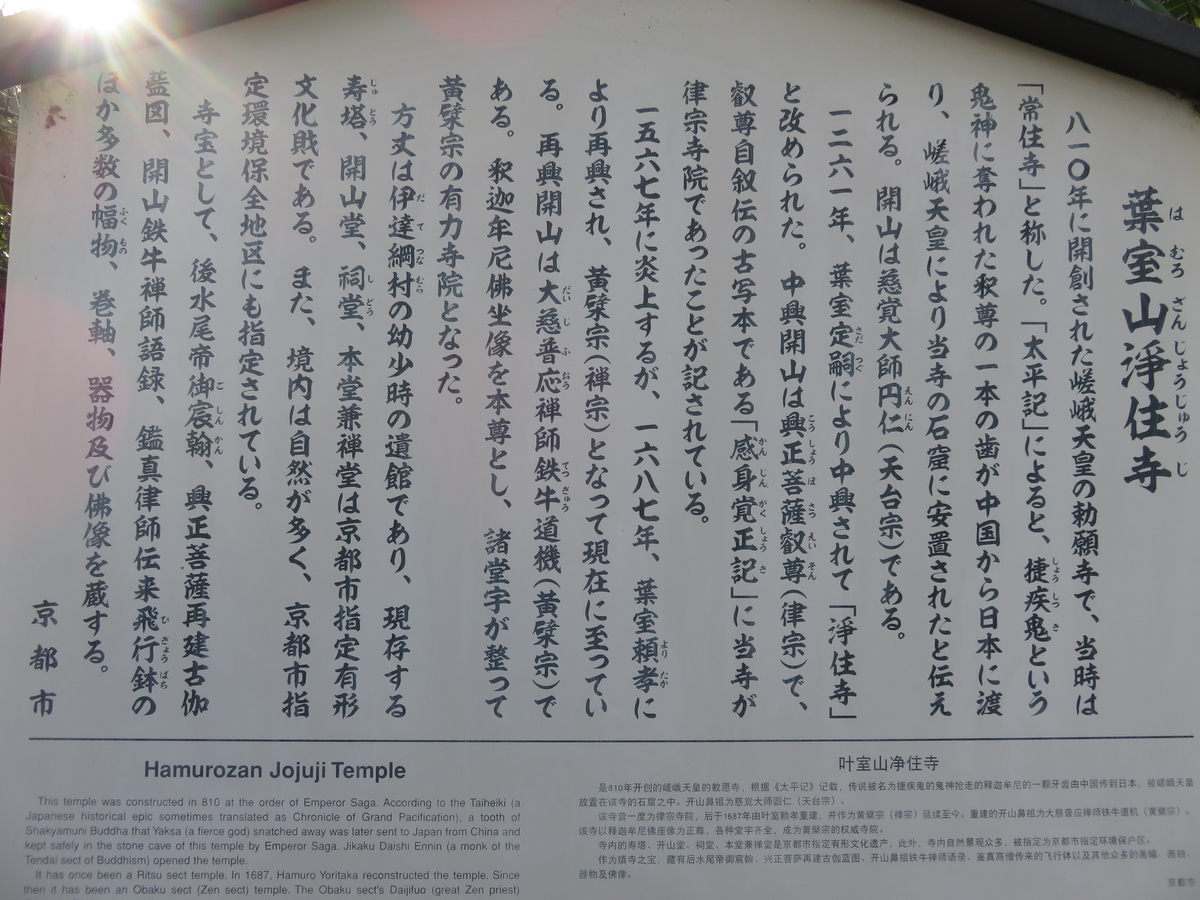 葉室山淨住寺
はむろざんじょうじゅうじ
八一〇年に開創された嵯峨天皇の勅願寺で、当時は
「常住寺」と称した。「太平記」によると、捷疾鬼という
しょうしつき
鬼神に奪われた釈尊の一本の歯が中国から日本に渡
り、嵯峨天皇により当寺の石窟に安置されたと伝え
られる。開山は慈覚大師円仁(天台宗)である。
えんにん
一二六一年、葉室定嗣により中興されて「淨住寺」
さだつぐ
と改められた。中興開山は興正菩薩叡尊(律宗)で、
こうしょうぼさつえいそん
叡尊自叙伝の古写本である「感身覚正記」に当寺が
かんじんがくしょうき
律宗寺院であったことが記されている。
一五六七年に炎上するが、一六八七年、葉室頼孝に
よりたか
より再興され、黄檗宗(禅宗)となって現在に至ってい
る。再興開山は大慈普応禅師鉄牛道機(黄檗宗)で
だいじふおう
てつぎゅう
ある。釈迦牟尼佛坐像を本尊とし、諸堂宇が整って
黄檗宗の有力寺院となった。
方丈は伊達綱村の幼少時の遺館であり、現存する
だてつなむら
寿塔、開山堂、祠堂、本堂兼禅堂は京都市指定有形
じゅとう
しどう
文化財である。また、境内は自然が多く、京都市指
定環境保全地区にも指定されている。
寺宝として、後水尾帝御宸翰、興正菩薩再建古伽
ごしんかん
藍図、開山鉄牛禅師語録、鑑真律師伝来飛行鉢の
ひぎょうばち
ほか多数の幅物、巻軸、器物及び佛像を蔵する。
ふくもの
京都市
Hamurozan Jojuji Temple
This temple was constructed in 810 at the order of Emperor Saga. According to the Taiheiki (a
Japanese historical epic sometimes translated as Chronicle of Grand Pacification), a tooth of
Shakyamuni Buddha that Yaksa (a fierce god) snatched away was later sent to Japan from China and
kept safely in the stone cave of this temple by Emperor Saga. Jikaku Daishi Ennin (a monk of the
Tendai sect of Buddhism) opened the temple.
It has once been a Ritsu sect temple. In 1687, Hamuro Yoritaka reconstructed the temple. Since
then it has been an Obaku sect (Zen sect) temple. The Obaku sect's Daijifuo (great Zen priest)
叶室山净住寺
是810年开创的嵯峨天皇的敕愿寺，根据《太平记》记载，传说被名为捷疾鬼的鬼神抢走的释迦牟尼的一颗牙齿由中国传到日本，被嵯峨天皇
放置在该寺的石窟之中。开山鼻祖为慈觉大师圆仁（天台宗）。
该寺曾一度为律宗寺院，后于1687年由叶室赖孝重建，并作为黄檗宗（禅宗）延续至今。重建的开山鼻祖为大慈普应禅师铁牛道机（黄檗宗）。
该寺以释迦牟尼佛座像为正尊，各种堂宇齐全，成为黄檗宗的权威寺院。
寺内的寿塔、开山堂、祠堂、本堂兼禅堂是京都市指定有形文化遗产，此外，寺内自然景观众多，被指定为京都市指定环境保护区。
作为镇寺之宝，藏有后水尾帝御宸翰、兴正菩萨再建古伽蓝图、开山鼻祖铁牛禅师语录、鉴真高僧传来的飞行钵以及其他众多的画幅、画轴、
器物及佛像。
京都市